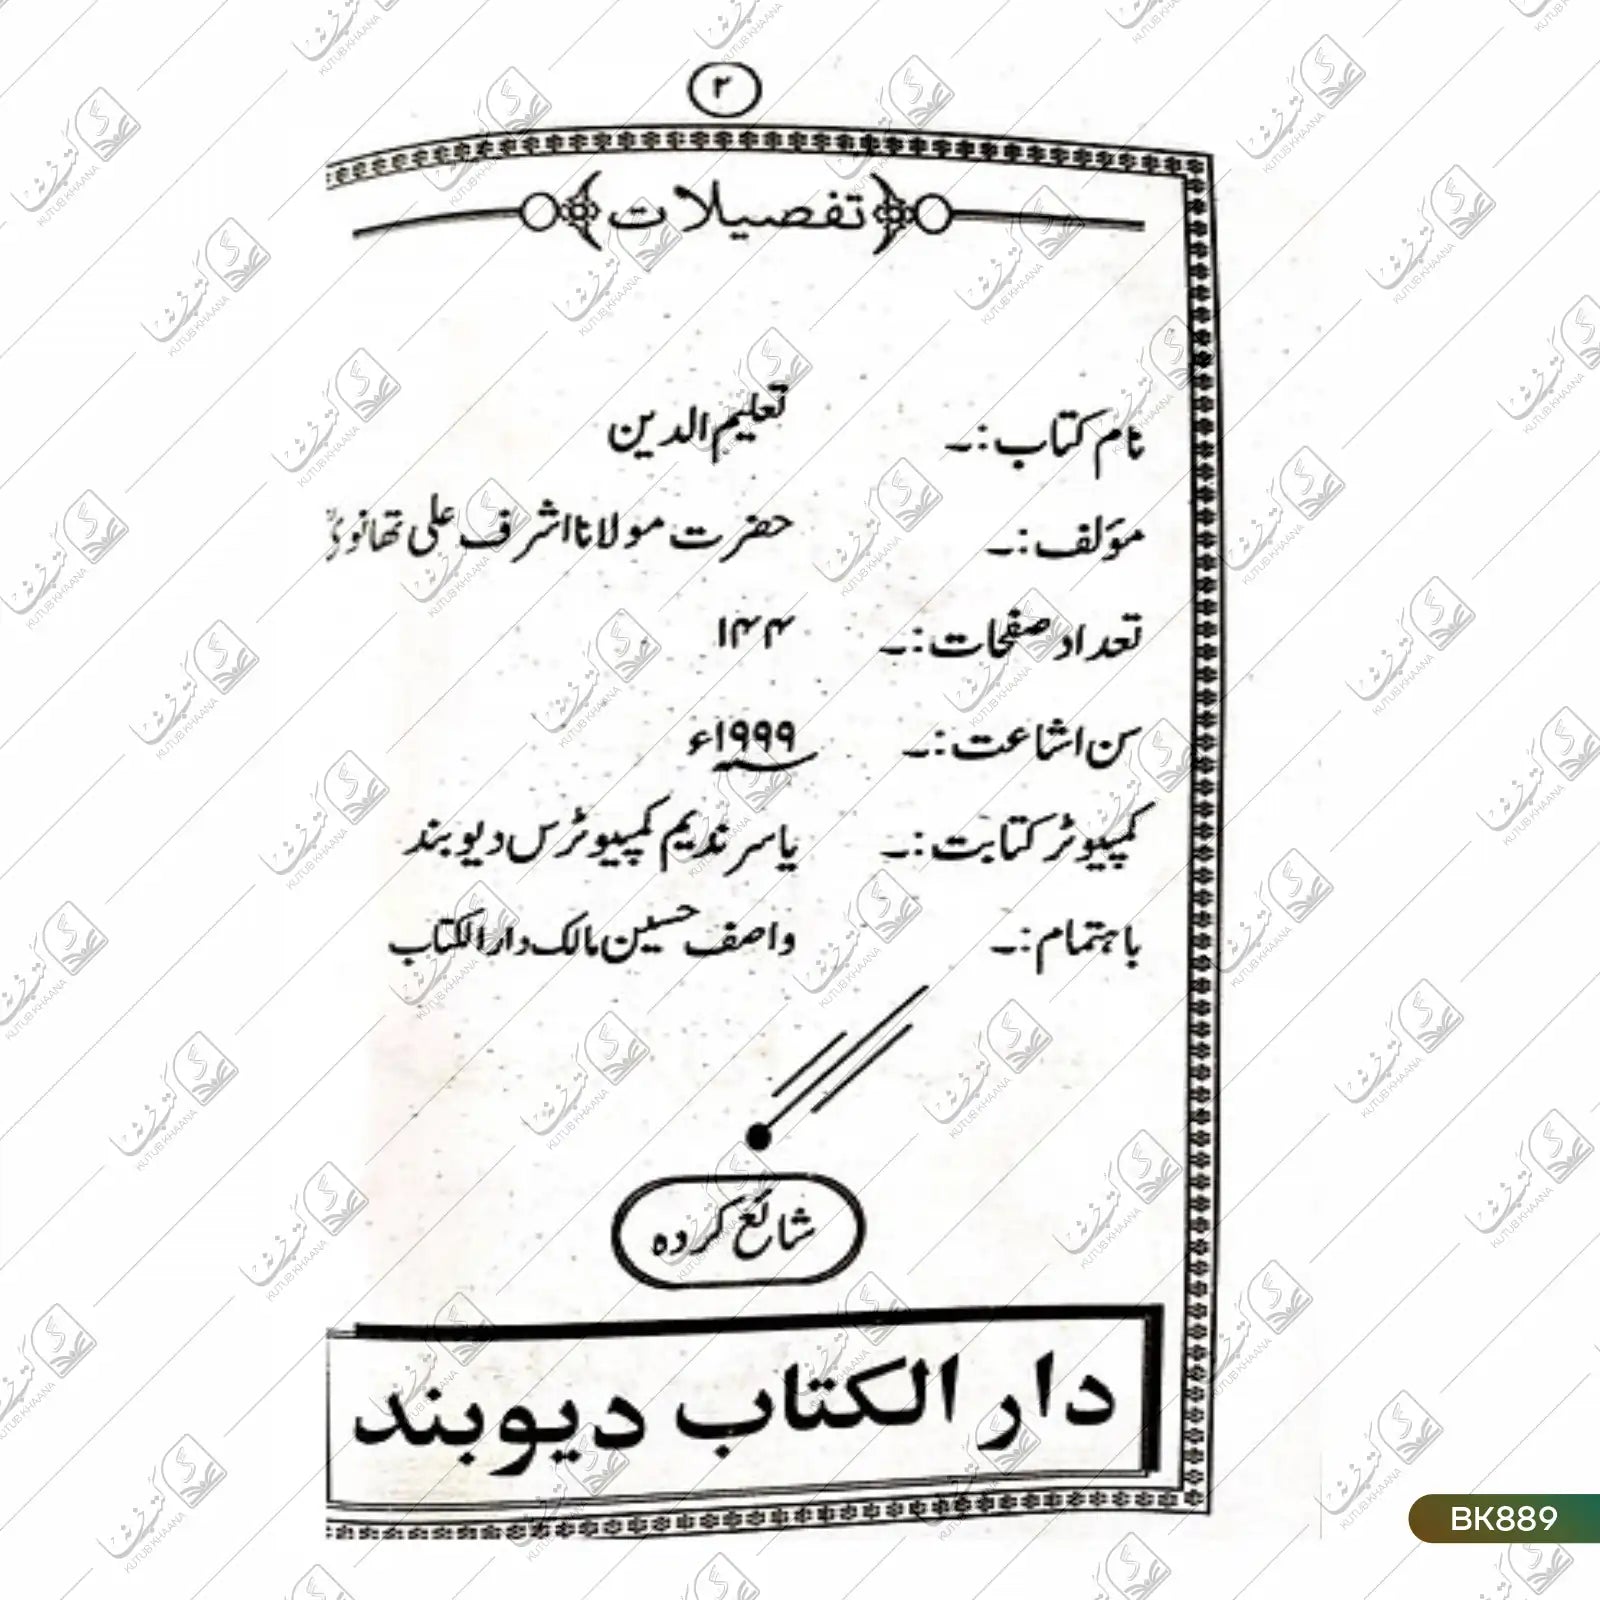 ۲
تفصیلات
نام کتاب :۔ تعلیم الدین
مؤلف :۔ حضرت مولانا اشرف علی تھانویؒ
تعداد صفحات :۔ ۱۴۴
سن اشاعت :۔ ۱۹۹۹ء
کمپیوٹر کتابت :۔ یاسر ندیم کمپیوٹرس دیوبند
باہتمام :۔ واصف حسین مالک دار الکتاب
شائع کردہ
دار الکتاب دیوبند
BK889
کتب خانہ
KUTUB KHAANA